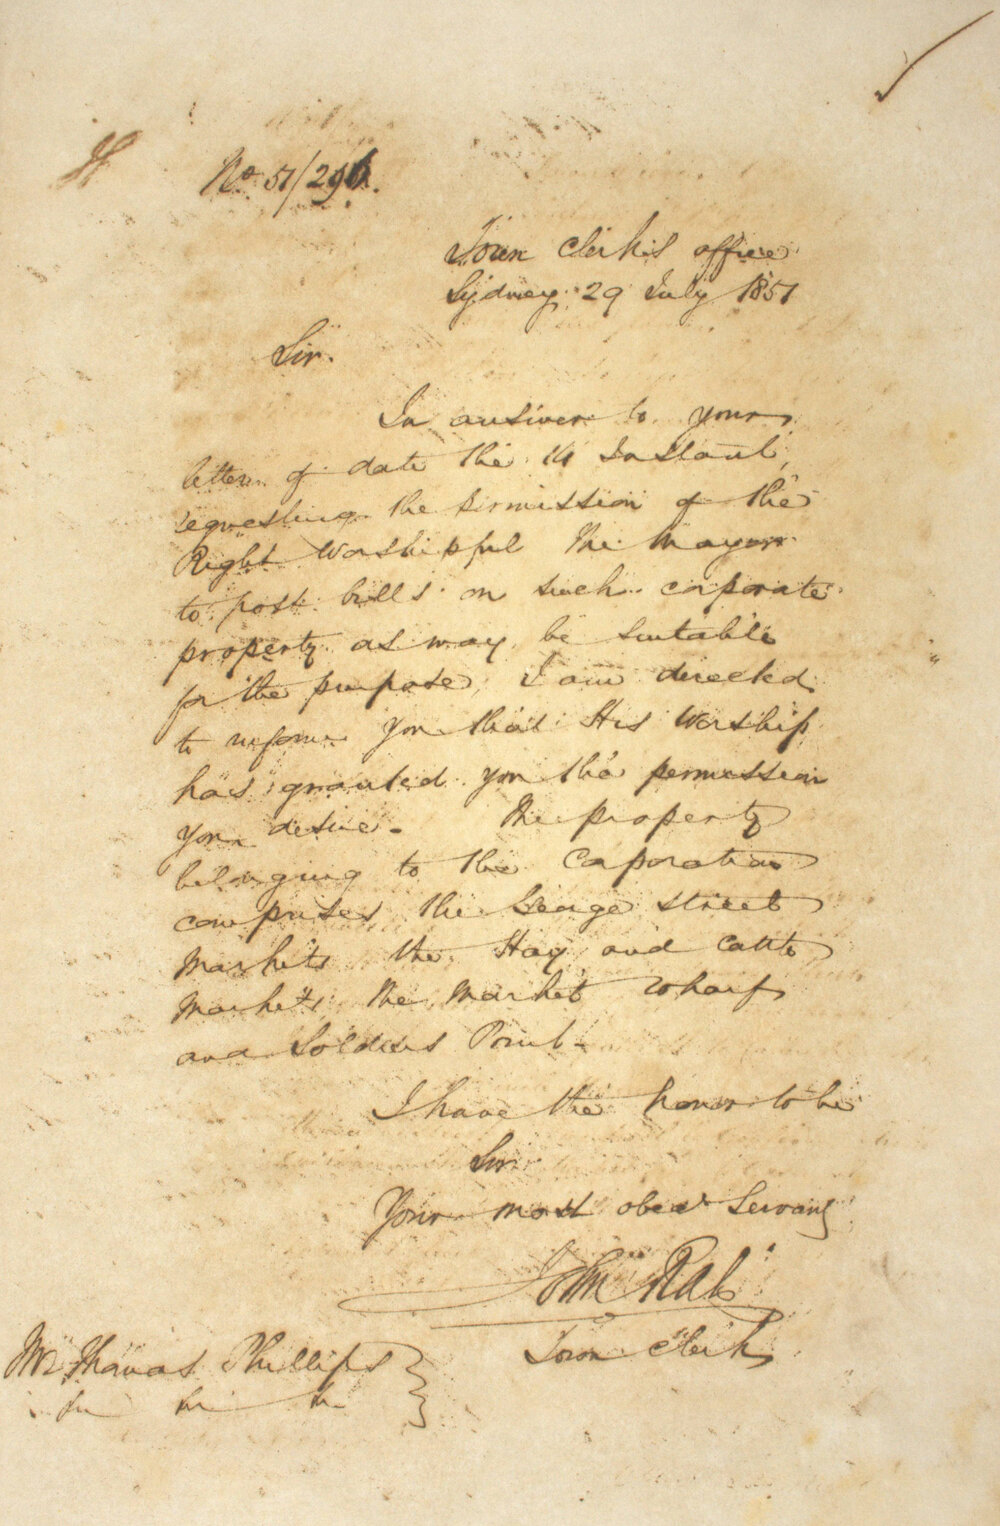 No. 51/296.
Town Clerk's office
Sydney 29 July 1851
Sir.
In answer to your
letter of date the 14 Instant,
requesting the permission of the
Right Worshipful the Mayor
to post bills on such corporate
property as may be suitable
for the purpose, I am directed
to inform you that His Worship
has granted you the permission
you desire. The property
belonging to the Corporation
comprises the George Street
Markets the Hay and Cattle
Markets, the Market Wharf
and Soldiers Point.
I have the honor to be
Sir
Your most obedt Servant
John Rae
Town Clerk
Mr Thomas Phillips